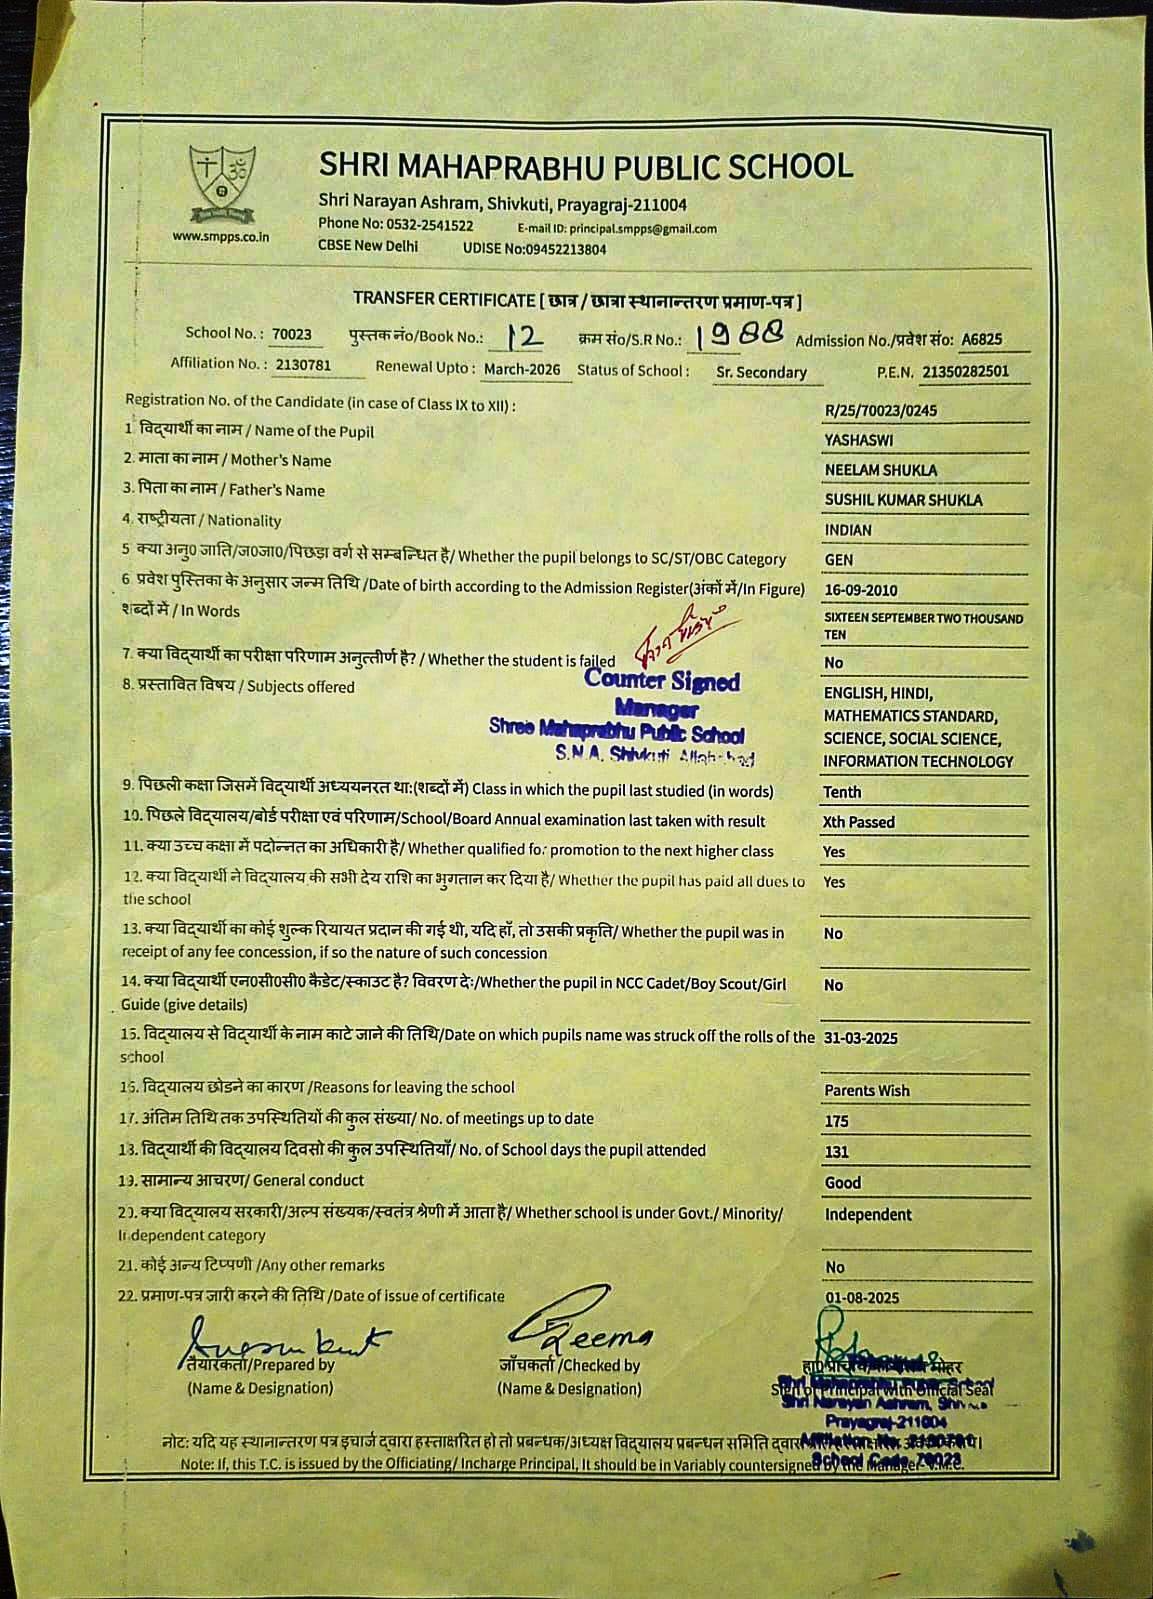 SHRI MAHAPRABHU PUBLIC SCHOOL
Shri Narayan Ashram, Shivkuti, Prayagraj-211004
Phone No: 0532-2541522 E-mail ID: principal.smpps@gmail.com
www.smpps.co.in
CBSE New Delhi UDISE No:09452213804
TRANSFER CERTIFICATE [ छात्र / छात्रा स्थानान्तरण प्रमाण-पत्र ]
School No. : 70023 पुस्तक नं०/Book No.: 12 क्रम सं०/S.R No.: 1988 Admission No./प्रवेश सं०: A6825
Affiliation No. : 2130781 Renewal Upto : March-2026 Status of School : Sr. Secondary P.E.N. 21350282501
Registration No. of the Candidate (in case of Class IX to XII) : R/25/70023/0245
1. विद्यार्थी का नाम / Name of the Pupil YASHASWI
2. माता का नाम / Mother's Name NEELAM SHUKLA
3. पिता का नाम / Father's Name SUSHIL KUMAR SHUKLA
4. राष्ट्रीयता / Nationality INDIAN
5 क्या अनु0 जाति/ज0जा0/पिछड़ा वर्ग से सम्बन्धित है/ Whether the pupil belongs to SC/ST/OBC Category GEN
6 प्रवेश पुस्तिका के अनुसार जन्म तिथि /Date of birth according to the Admission Register(अंकों में/In Figure) 16-09-2010
शब्दों में / In Words SIXTEEN SEPTEMBER TWO THOUSAND
TEN
7. क्या विद्यार्थी का परीक्षा परिणाम अनुत्तीर्ण है? / Whether the student is failed No
8. प्रस्तावित विषय / Subjects offered ENGLISH, HINDI,
MATHEMATICS STANDARD,
SCIENCE, SOCIAL SCIENCE,
INFORMATION TECHNOLOGY
Counter Signed
Manager
Shree Mahaprabhu Public School
S.N.A. Shivkuti Allahabad
9. पिछली कक्षा जिसमें विद्यार्थी अध्ययनरत था:(शब्दों में) Class in which the pupil last studied (in words) Tenth
10. पिछले विद्यालय/बोर्ड परीक्षा एवं परिणाम/School/Board Annual examination last taken with result Xth Passed
11. क्या उच्च कक्षा में पदोन्नत का अधिकारी है/ Whether qualified for promotion to the next higher class Yes
12. क्या विद्यार्थी ने विद्यालय की सभी देय राशि का भुगतान कर दिया है/ Whether the pupil has paid all dues to Yes
the school
13. क्या विद्यार्थी का कोई शुल्क रियायत प्रदान की गई थी, यदि हाँ, तो उसकी प्रकृति/ Whether the pupil was in No
receipt of any fee concession, if so the nature of such concession
14. क्या विद्यार्थी एन0सी0सी0 कैडेट/स्काउट है? विवरण दे:/Whether the pupil in NCC Cadet/Boy Scout/Girl No
Guide (give details)
15. विद्यालय से विद्यार्थी के नाम काटे जाने की तिथि/Date on which pupils name was struck off the rolls of the 31-03-2025
school
16. विद्यालय छोडने का कारण /Reasons for leaving the school Parents Wish
17. अंतिम तिथि तक उपस्थितियों की कुल संख्या/ No. of meetings up to date 175
18. विद्यार्थी की विद्यालय दिवसो की कुल उपस्थितियाँ/ No. of School days the pupil attended 131
19. सामान्य आचरण/ General conduct Good
20. क्या विद्यालय सरकारी/अल्प संख्यक/स्वतंत्र श्रेणी में आता है/ Whether school is under Govt./ Minority/ Independent
Independent category
21. कोई अन्य टिप्पणी /Any other remarks No
22. प्रमाण-पत्र जारी करने की तिथि /Date of issue of certificate 01-08-2025
Reema
तैयारकर्ता/Prepared by जाँचकर्ता /Checked by
(Name & Designation) (Name & Designation) Sign of Principal with Official Seal
Shri Mahaprabhu Public School
Shri Narayan Ashram,
Prayagraj-211004
Affiliation No. 2130781
School Code 70023
नोट: यदि यह स्थानान्तरण पत्र इचार्ज द्वारा हस्ताक्षरित हो तो प्रबन्धक/अध्यक्ष विद्यालय प्रबन्धन समिति द्वारा
Note: If, this T.C. is issued by the Officiating/ Incharge Principal, It should be in Variably countersigned by the Manager V.M.C.